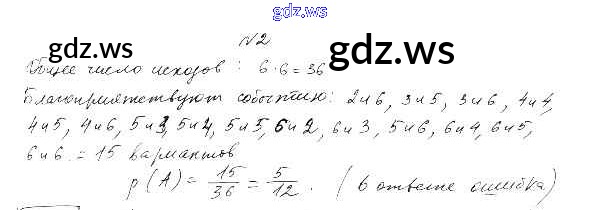 gdz.ws
№2
gdz.ws gdz.ws
Общее число исходов: 6·6=36
Благоприятствуют событию: 2и6, 3и5, 3и6, 4и4,
4и5, 4и6, 5и3, 5и4, 5и5, 6и2, 6и3, 5и6, 6и4, 6и5,
6и6. = 15 вариантов
p(A) = 15/36 = 5/12. (в ответе ошибка)